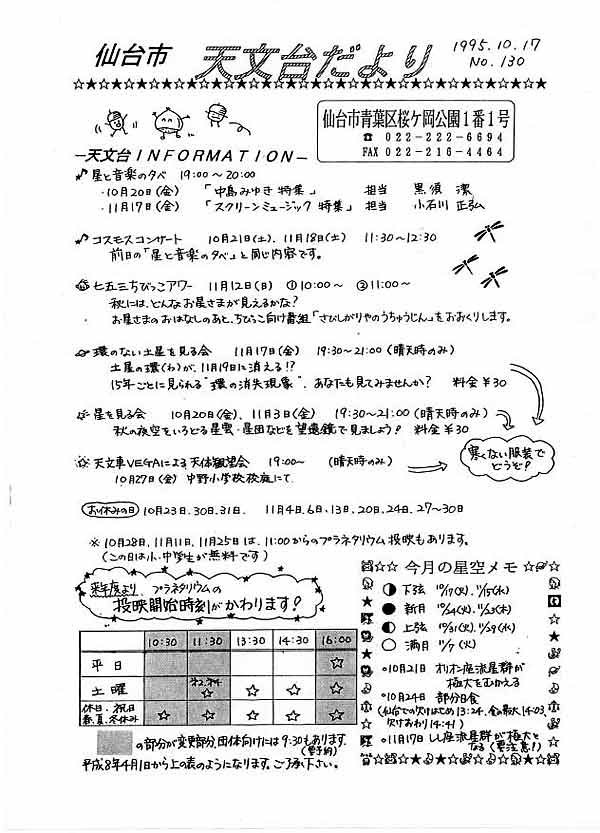 仙台市 天文台だより 1995.10.17
No.130
☆★☆★☆★☆★☆★☆★☆★☆★☆★☆★☆★☆★☆★☆★☆★☆★☆★☆★☆★
仙台市青葉区桜ケ岡公園1番1号
☎ 022-222-6694
FAX 022-216-4464
—天文台INFORMATION—
♪星と音楽の夕べ 19:00〜20:00
・10月20日(金) 「中島みゆき特集」 担当 黒須 潔
・11月17日(金) 「スクリーンミュージック特集」 担当 小石川 正弘
♪コスモスコンサート 10月21日(土), 11月18日(土) 11:30〜12:30
前日の「星と音楽の夕べ」と同じ内容です。
七五三ちびっこアワー 11月12日(日) ①10:00〜 ②11:00〜
秋には、どんなお星さまが見えるかな?
お星さまのおはなしのあと、ちびっこ向け番組「さびしがりやのうちゅうじん」をおおくりします。
環のない土星を見る会 11月17日(金) 19:30〜21:00(晴天時のみ)
土星の環(わ)が、11月19日に消える!?
15年ごとに見られる"環の消失現象"、あなたも見てみませんか? 料金¥30
星を見る会 10月20日(金), 11月3日(金) 19:30〜21:00(晴天時のみ)
秋の夜空をいろどる星雲・星団などを望遠鏡で見ましょう! 料金¥30
寒くない服装でどうぞ!
☆天文車VEGAによる天体観望会 19:00〜 (晴天時のみ)
10月27日(金) 中野小学校校庭にて
お休みの日 10月23日,30日,31日, 11月4日,6日,13日,20日,24日,27〜30日
※10月28日,11月11日,11月25日は、11:00からのプラネタリウム投映もあります。
(この日は小・中学生が無料です)
来年度より、プラネタリウムの
投映開始時刻がかわります!
10:30 11:30 13:30 14:30 16:00
平日 ☆
土曜 ☆ ☆ ☆ ☆
休日・祝日
春,夏,冬休み ☆ ☆ ☆ ☆ ☆
の部分が変更部分,団体向けには9:30もあります。
(要予約)
平成8年4月1日から上の表のようになります。ご了承下さい。
☆☆今月の星空メモ☆
下弦 10/17(火), 11/15(水)
新月 10/24(火), 11/23(木)
上弦 10/31(火), 11/29(水)
満月 11/7(火)
○10月21日 オリオン座流星群が
極大をむかえる
○10月24日 部分日食
(仙台での欠けはじめ13:24,食の最大14:03,
欠けおわり14:41)
○11月17日 しし座流星群が極大と
なる(要注意!)